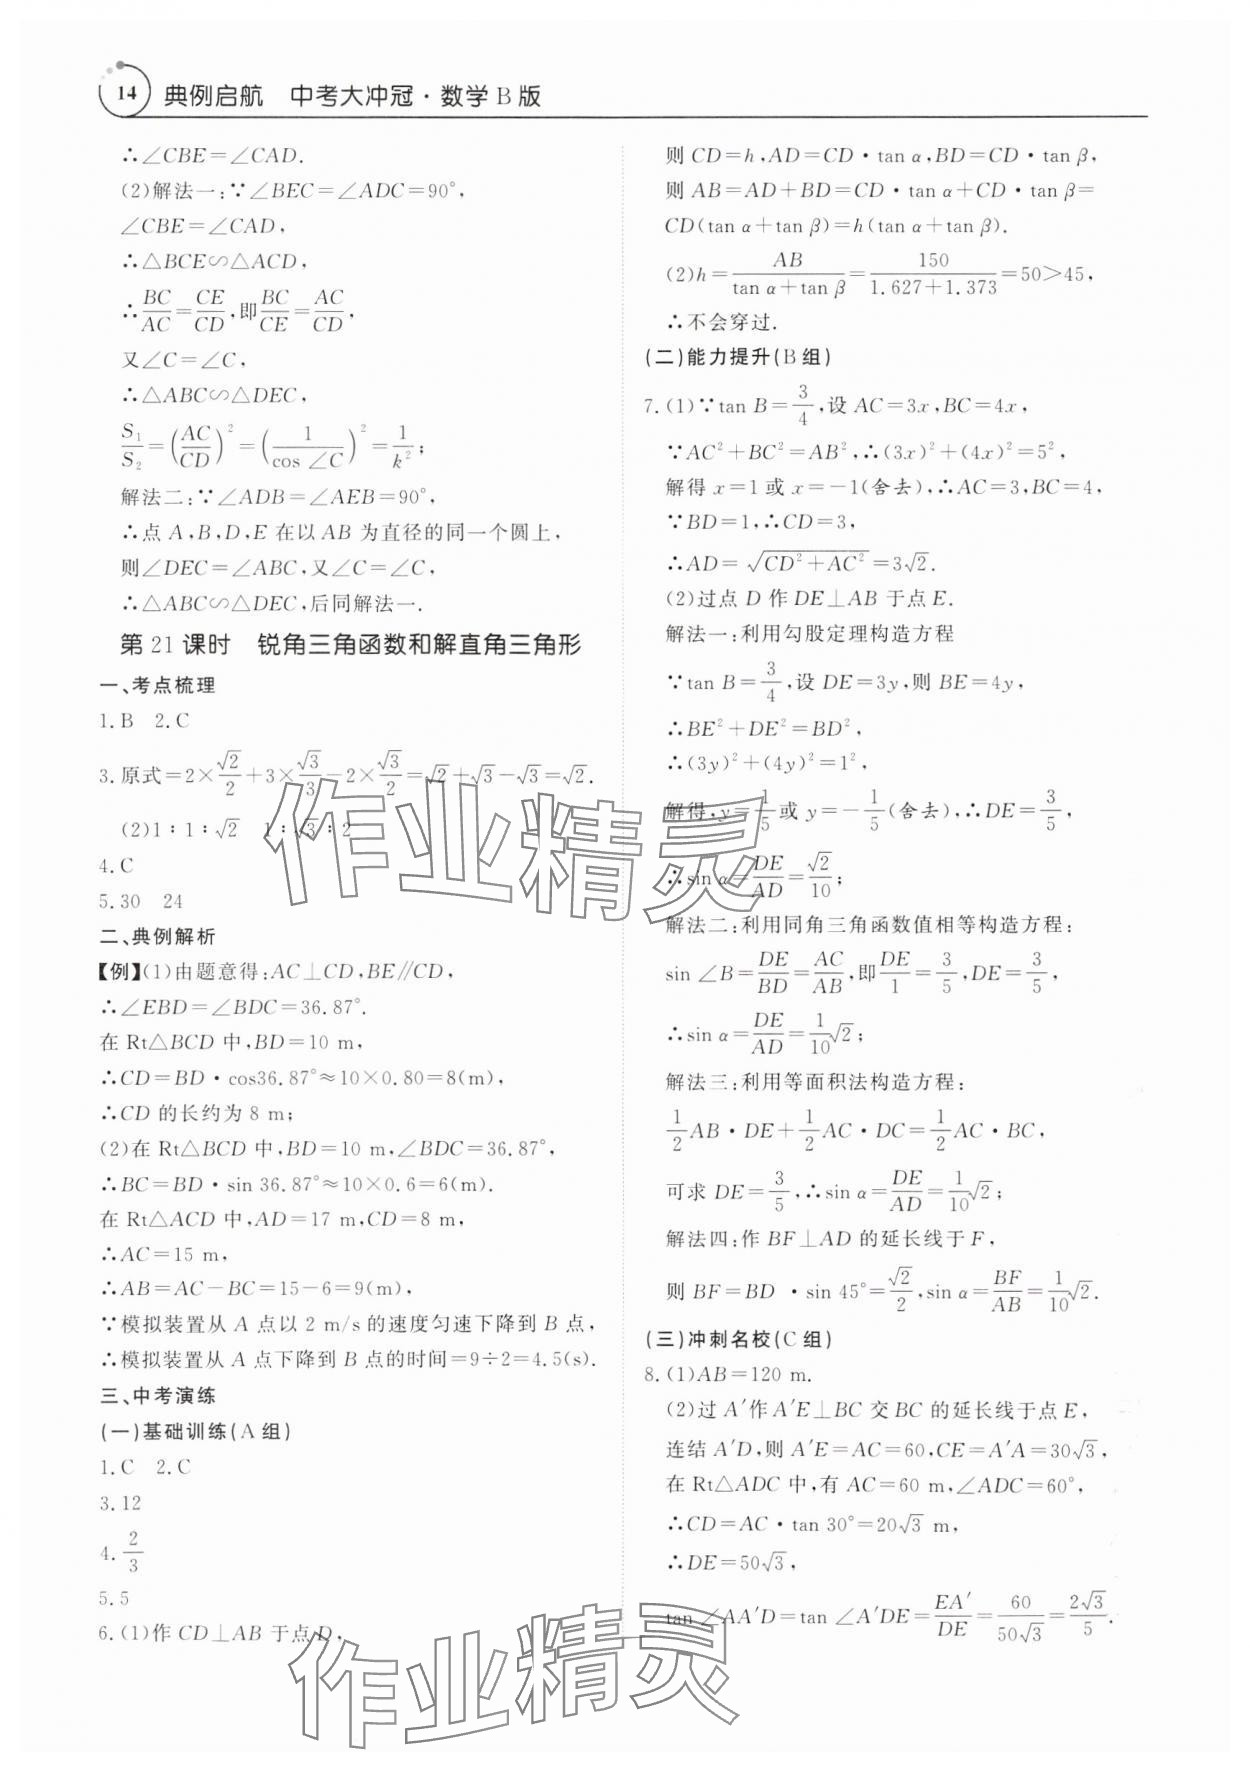 14 典例启航 中考大冲冠·数学B版
∴∠CBE=∠CAD.
(2)解法一:∵∠BEC=∠ADC=90°,
∠CBE=∠CAD,
∴△BCE∽△ACD,
∴BC/AC=CE/CD,即BC/CE=AC/CD,
又∠C=∠C,
∴△ABC∽△DEC,
S₁/S₂=(AC/CD)²=(1/cos∠C)²=1/k²;
解法二:∵∠ADB=∠AEB=90°,
∴点A,B,D,E在以AB为直径的同一个圆上,
则∠DEC=∠ABC,又∠C=∠C,
∴△ABC∽△DEC,后同解法一.
第21课时 锐角三角函数和解直角三角形
一、考点梳理
1.B 2.C
3.原式=2×√2/2+3×√3/3-2×√3/2=√2+√3-√3=√2.
(2)1∶1∶√2 1∶√3∶2
4.C
5.30 24
二、典例解析
【例】(1)由题意得:AC⊥CD,BE∥CD,
∴∠EBD=∠BDC=36.87°.
在Rt△BCD中,BD=10 m,
∴CD=BD·cos36.87°≈10×0.80=8(m),
∴CD的长约为8 m;
(2)在Rt△BCD中,BD=10 m,∠BDC=36.87°,
∴BC=BD·sin 36.87°≈10×0.6=6(m).
在Rt△ACD中,AD=17 m,CD=8 m,
∴AC=15 m,
∴AB=AC-BC=15-6=9(m),
∵模拟装置从A点以2 m/s的速度匀速下降到B点,
∴模拟装置从A点下降到B点的时间=9÷2=4.5(s).
三、中考演练
(一)基础训练(A组)
1.C 2.C
3.12
4.2/3
5.5
6.(1)作CD⊥AB于点D,
则CD=h,AD=CD·tan α,BD=CD·tan β,
则AB=AD+BD=CD·tan α+CD·tan β=
CD(tan α+tan β)=h(tan α+tan β).
(2)h=AB/(tan α+tan β)=150/(1.627+1.373)=50>45,
∴不会穿过.
(二)能力提升(B组)
7.(1)∵tan B=3/4,设AC=3x,BC=4x,
∵AC²+BC²=AB²,∴(3x)²+(4x)²=5²,
解得x=1或x=-1(舍去),∴AC=3,BC=4,
∵BD=1,∴CD=3,
∴AD=√(CD²+AC²)=3√2.
(2)过点D作DE⊥AB于点E.
解法一:利用勾股定理构造方程
∵tan B=3/4,设DE=3y,则BE=4y,
∴BE²+DE²=BD²,
∴(3y)²+(4y)²=1²,
解得,y=1/5或y=-1/5(舍去),∴DE=3/5,
∴sin α=DE/AD=√2/10;
解法二:利用同角三角函数值相等构造方程:
sin∠B=DE/BD=AC/AB,即DE/1=3/5,DE=3/5,
∴sin α=DE/AD=1/10√2;
解法三:利用等面积法构造方程:
1/2AB·DE+1/2AC·DC=1/2AC·BC,
可求DE=3/5,∴sin α=DE/AD=1/10√2;
解法四:作BF⊥AD的延长线于F,
则BF=BD·sin 45°=√2/2,sin α=BF/AB=1/10√2.
(三)冲刺名校(C组)
8.(1)AB=120 m.
(2)过A′作A′E⊥BC交BC的延长线于点E,
连结A′D,则A′E=AC=60,CE=A′A=30√3,
在Rt△ADC中,有AC=60 m,∠ADC=60°,
∴CD=AC·tan 30°=20√3 m,
∴DE=50√3,
tan∠AA′D=tan∠A′DE=EA′/DE=60/50√3=2√3/5.
作业精灵
作业精灵